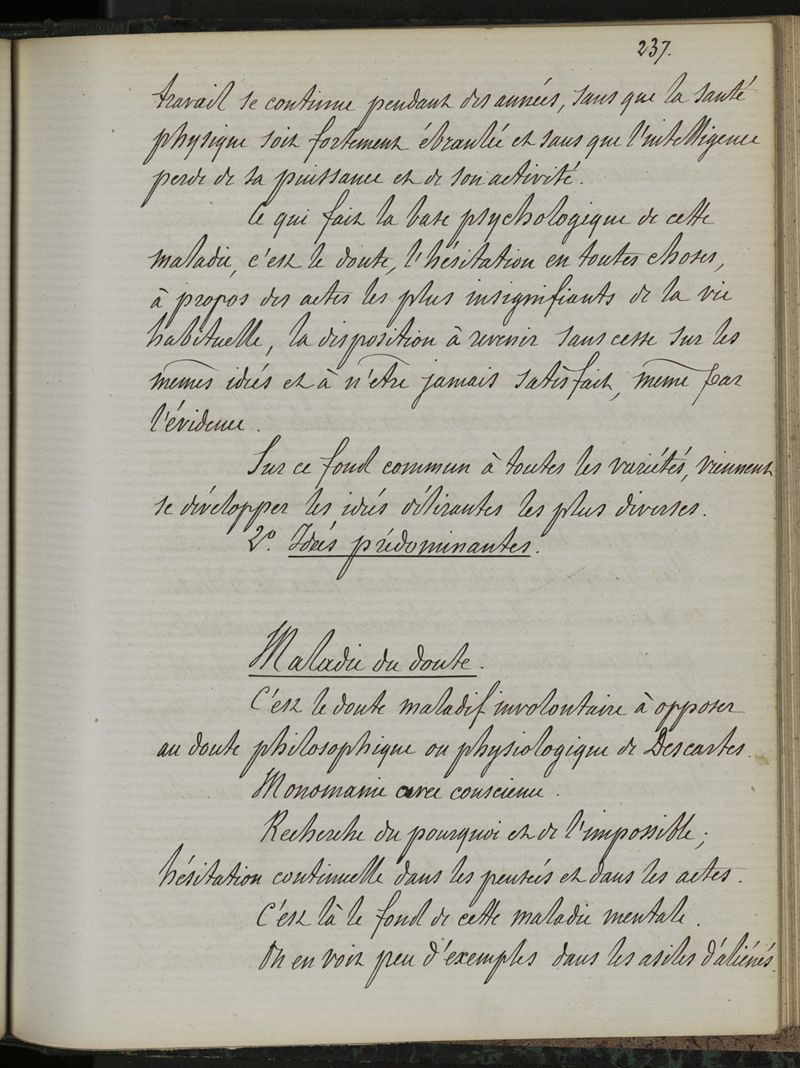 237.
travail se continue pendant des années, sans que la santé
physique soit fortement ébranlée et sans que l'intelligence
perde de sa puissance et de son activité.
Ce qui fait la base psychologique de cette
maladie, c'est le doute, l'hésitation en toutes choses,
à propos des actes les plus insignifiants de la vie
habituelle, la disposition à revenir sans cesse sur les
mêmes idées et à n'être jamais satisfait, même par
l'évidence.
Sur ce fond commun à toutes les variétés, viennent
se développer les idées délirantes les plus diverses.
2º. Idées prédominantes.
Maladie du doute.
C'est le doute maladif involontaire à opposer
au doute philosophique ou physiologique de Descartes.
Monomanie avec conscience.
Recherche du pourquoi et de l'impossible;
hésitation continuelle dans les pensées et dans les actes.
C'est là le fond de cette maladie mentale.
On en voit peu d'exemples dans les asiles d'aliénés.